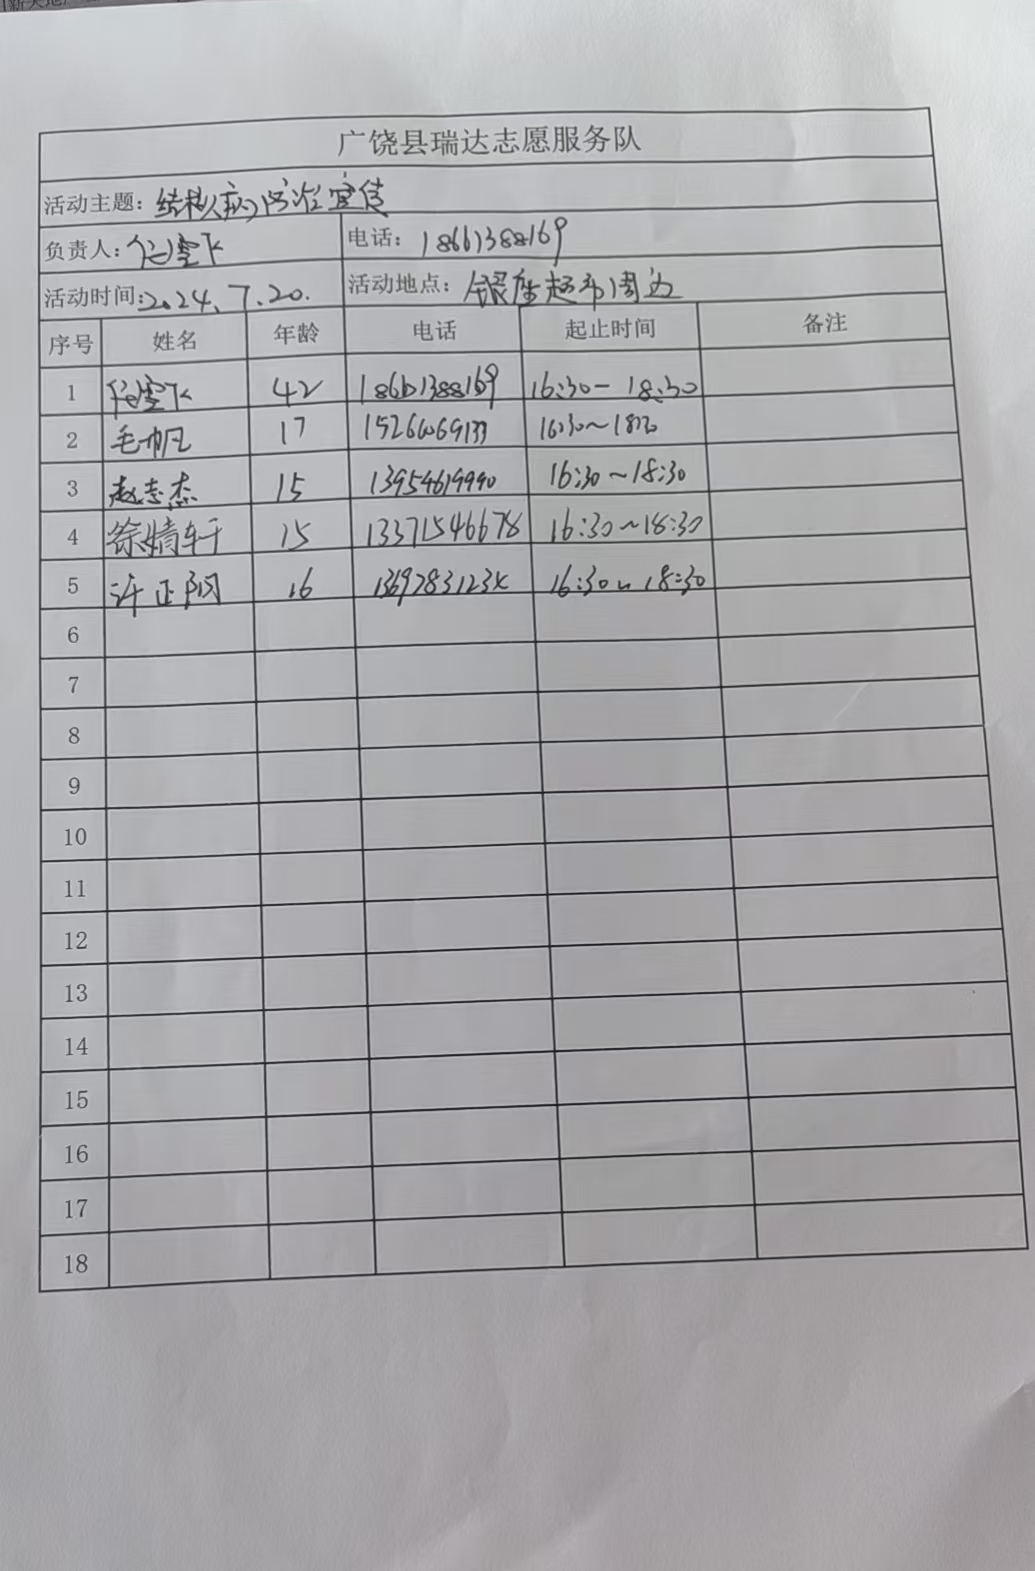 广饶县瑞达志愿服务队
活动主题: 结核病防治宣传
负责人: 任雪飞 电话: 18661388169
活动时间: 2024.7.20. 活动地点: 银座超市周边
序号 姓名 年龄 电话 起止时间 备注
1 任雪飞 42 18661388169 16:30-18:30
2 毛帆 17 16:30~18:30
3 赵志杰 15 13954619990 16:30~18:30
4 徐婧轩 15 13371546678 16:30~18:30
5 许正阳 16 16:30~18:30
6
7
8
9
10
11
12
13
14
15
16
17
18